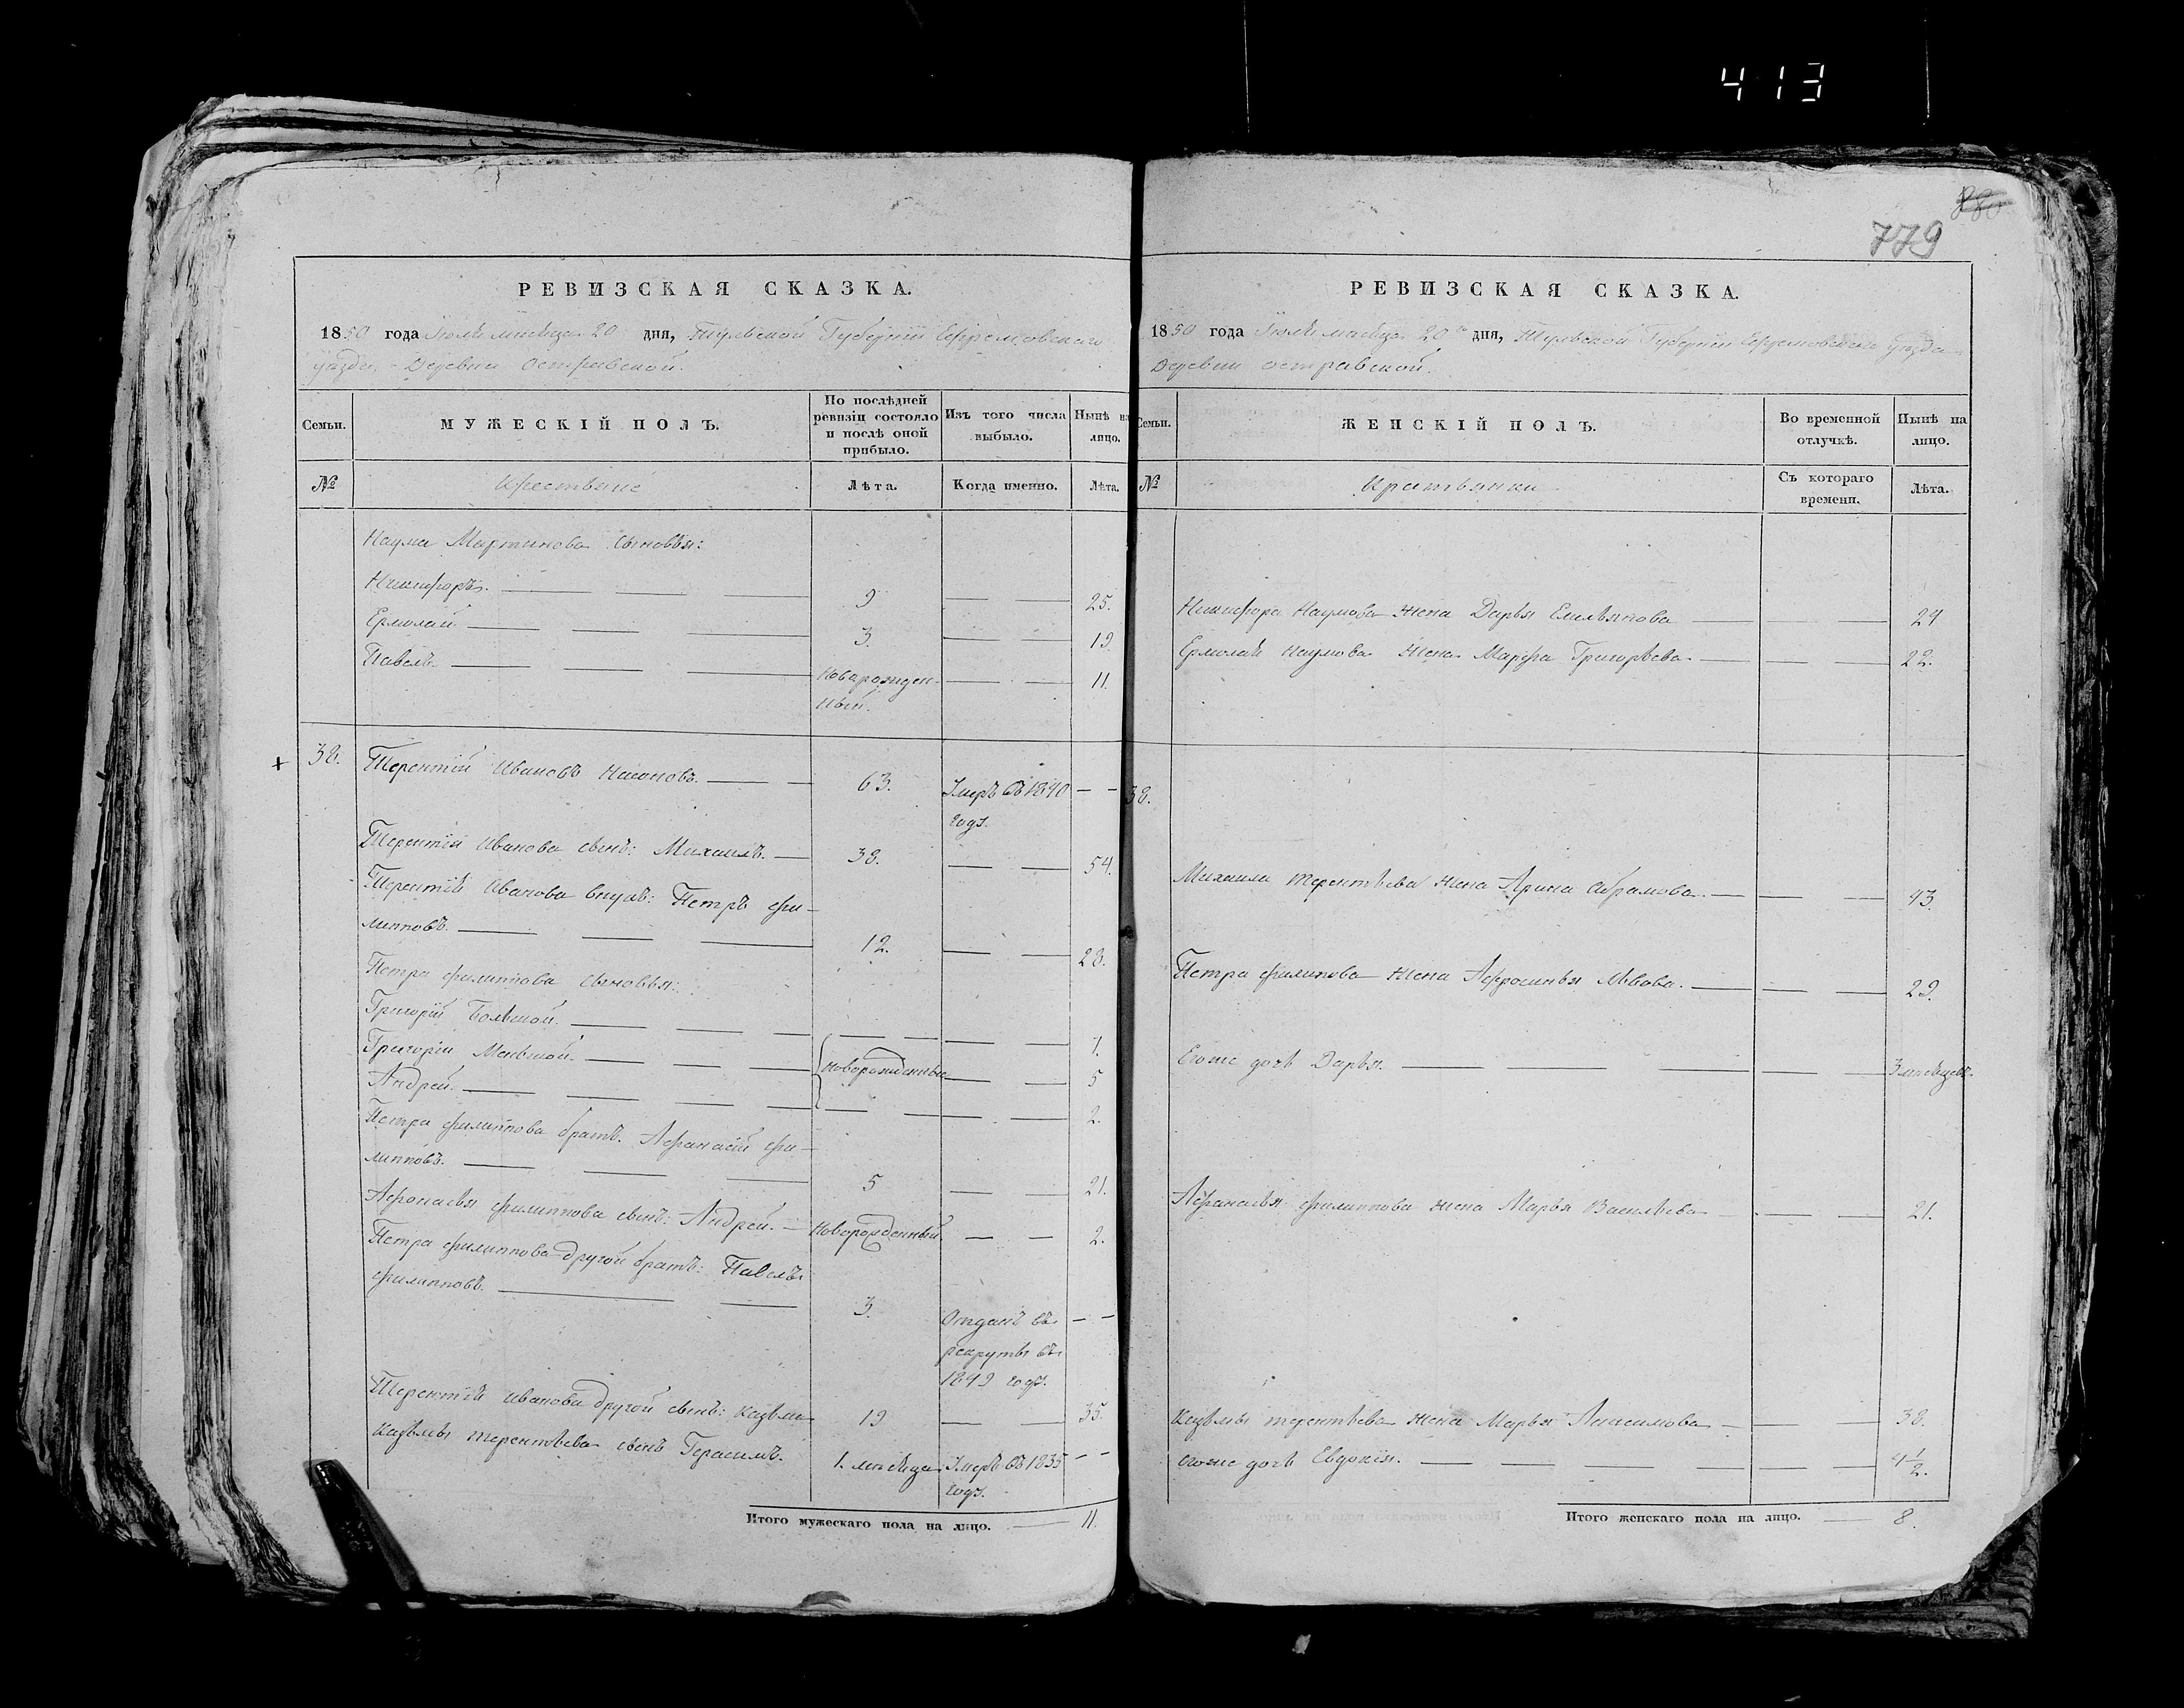 413
880
779
РЕВИЗСКАЯ СКАЗКА.
1850 года Іюля мѣсяца 20 дня, Тульской Губерніи Ефремовскаго
уѣзда, - Деревни Островской.
Семьи.
МУЖЕСКІЙ ПОЛЪ.
По послѣдней ревизіи состояло и послѣ оной прибыло.
Изъ того числа выбыло.
Нынѣ на лицо.
№
Крестьяне
Лѣта.
Когда именно.
Лѣта.
Наума Мартинова сыновья:
Никифоръ. 9 25.
Ермолай 3. 19
Павелъ. Новорожден- 11.
ный.
38. Терентій Ивановъ Насоновъ. 63. Умеръ въ 1840
году.
Терентія Иванова сынъ: Михаилъ. 38. 54.
Терентія Иванова внукъ: Петръ Фи-
липповъ. 12. 28.
Петра Филиппова сыновья:
Григорій Большой. 7.
Григорій Меньшой. Новорожденные 5
Андрей. 2.
Петра Филиппова братъ. Афанасій Фи-
липповъ. 5 21.
Афонасья Филиппова сынъ: Андрей. Новорожденный 2.
Петра Филиппова другой братъ: Павелъ
Филипповъ. 3. Отданъ въ
рекруты въ
1849 году.
Терентія Иванова другой сынъ: Казьма 19 35.
Казьмы Терентьева сынъ Герасимъ. 1. мѣсяца Умеръ въ 1835
году.
Итого мужескаго пола на лицо. 11.
РЕВИЗСКАЯ СКАЗКА.
1850 года Іюля мѣсяца 20го дня, Тульской Губерніи Ефремовскаго уѣзда
Деревни Островской.
Семьи.
ЖЕНСКІЙ ПОЛЪ.
Во временной отлучкѣ.
Нынѣ на лицо.
№
Крестьянки
Съ котораго времени.
Лѣта.
Никифора Наумова жена Дарья Емельянова 24
Ермолая Наумова жена Марфа Григорьева. 22.
38.
Михаила Терентьева жена Арина Абрамова. 43.
Петра Филипова жена Афросинья Львова. 29.
Егоже дочь Дарья. 3 мѣсяцевъ.
Афанасья Филиппова жена Марья Васильева 21.
Казьмы Терентьева жена Марья Анисимова 38.
егоже дочь Евдокія. 4 1/2.
Итого женскаго пола на лицо. 8.